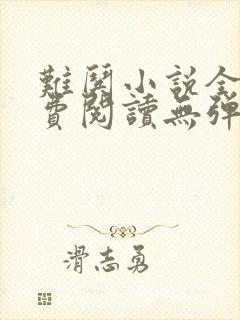 難關小說全
費閱讀無彈
滑志勇